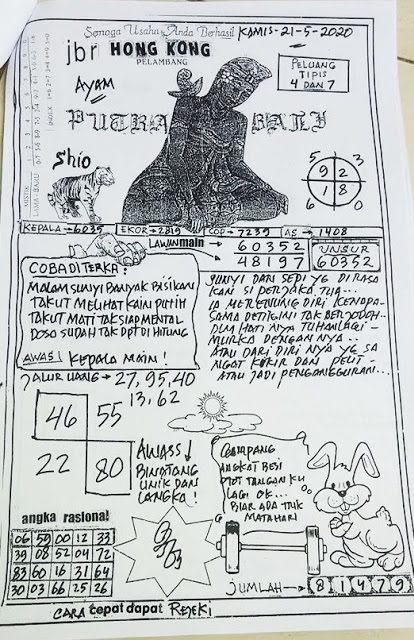 Semoga Usaha Anda Berhasil KAMIS-21-5-2020
jbr HONG KONG
PELAMBANG
PELUANG
TIPIS
4 DAN 7
AYAM
PUTRA BALI
Shio
5 3
9 2
1 8
6 0
MISTIK
LAMA:
BARU
INDEX
KEPALA-6035 EKOR-2819 COP-7239 AS-1408
LAWAN main 60352
48197
UNSUR
60352
COBA DI TERKA:
MALAM SUNYI BANYAK BISIKAN
TAKUT MELIHAT KAIN PUTIH
TAKUT MATI TAK SIAP MENTAL
DOSO SUDAH TAK DPT DI HITUNG
AWAS! KEPALA MAIN!
SUNYI DAN SEDI YG DI RASA
KAN SI PERJAKA TUA...
IA MERENUNG DIRI KENAPA-
SAMA DETIGINI TAK BERJODOH..
DLM HATI NYA TUHAN LAGI-
MURKA DENGAN NYA..
ATAU DARI DIRI NYA YG SA
NGAT KIKIR DAN PELIT-
ATAU JADI PENGANGGURAN....
JALUR UANG→27,95,40
13,62
46 55
22 80
AWASS
BINATANG
UNIK DAN
LANGKA!
ANGKAT BESI
TANGAN KU
LAGI OK...
BIAR ADA
MATAHARI
angka rasional
06 59 00 12 33
39 08 52 04 72
83 60 16 31 64
30 03 66 25 26
JUMLAH→ 8 1 4 7 9
CARA tepat dapat REJEKI